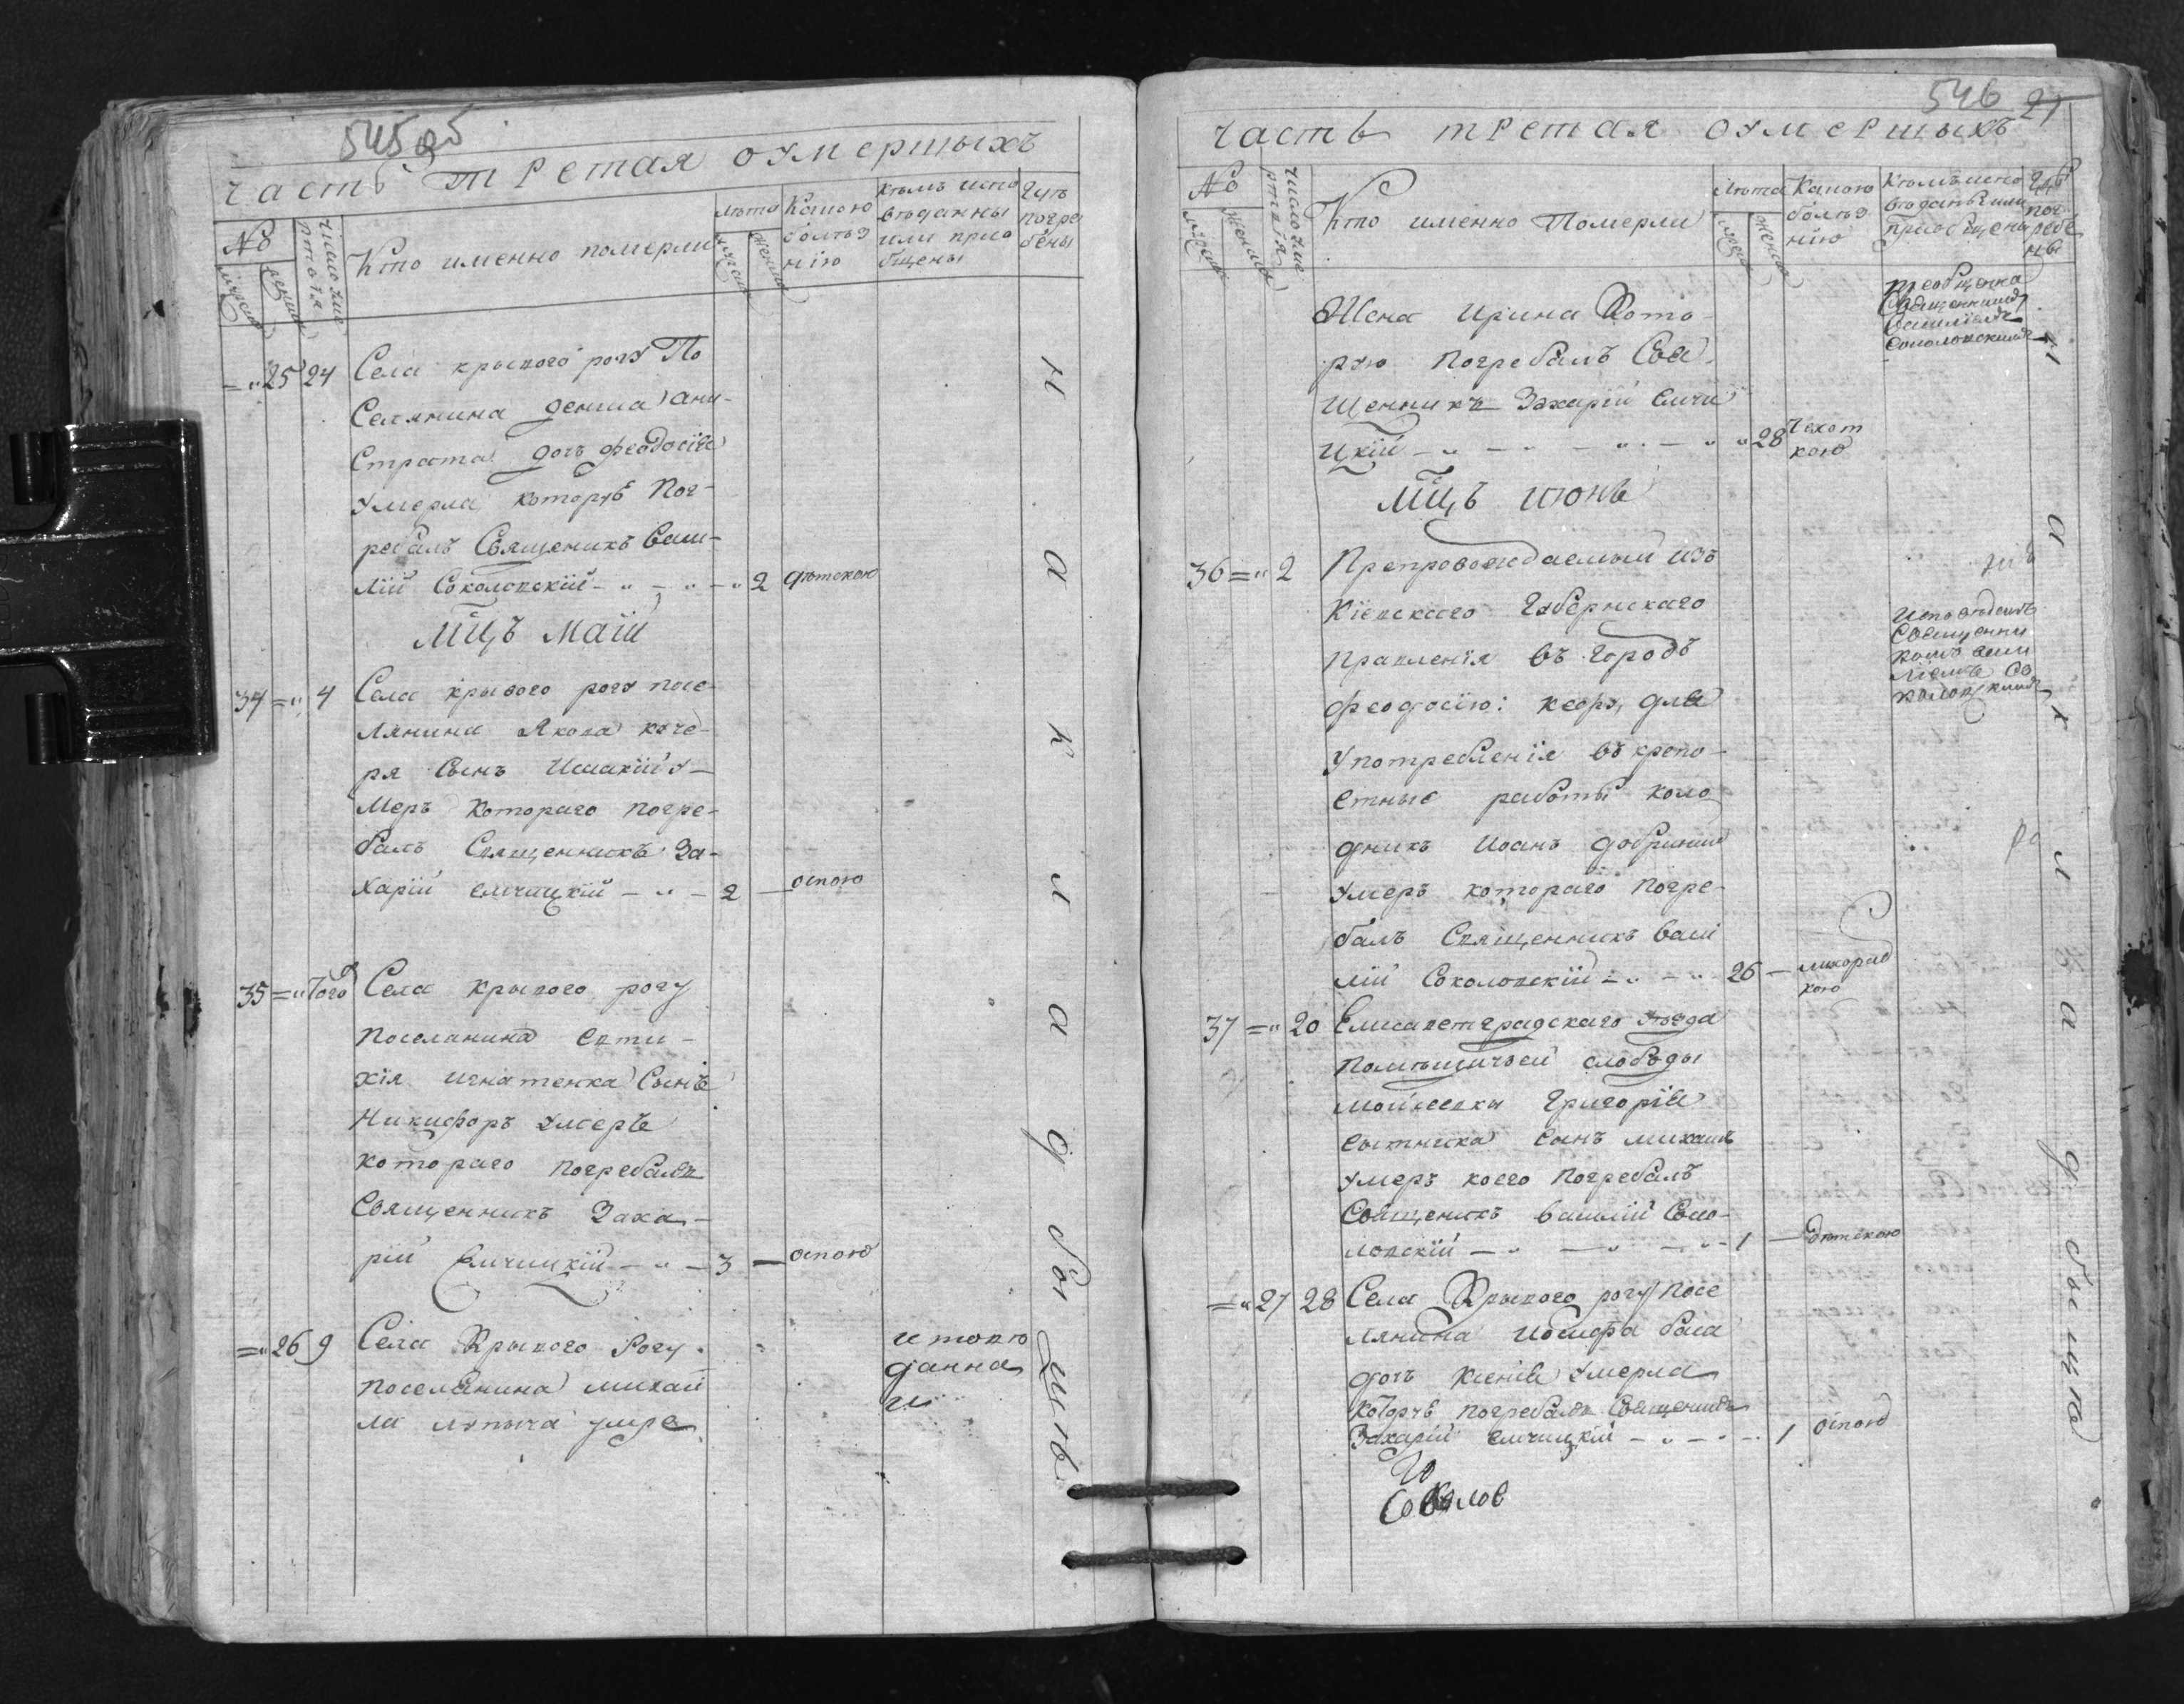 545 об
часть третая оумершыхъ
№
мужеска
женска
число умертвїя
Кто именно померли
лѣта
мужеска
женска
Какою болѣзнїю
кѣмъ исповѣданны или приобщены
Гдѣ погребены
="25 24 Села крывого рогу По
Селянина дениса ани-
Страта дочъ феодосїя
Умерла которуѣ Пог-
ребалъ Священикъ васи-
лїй Соколовскїй - " - " - " 2 дѣтскою
Мцъ Маїй
34 =" 4 Села крывого рогу посе-
лянина Якова кече-
ря Сынъ Исаакїй у-
Меръ котораго погре-
балъ Священникъ За-
харїй елчицкїй - " - 2 — оспою
35 =" Того Села крывого рогу
поселянина евти-
хїя игнатенка Сынъ
Никифоръ умеръ
котораго погребалъ
Священникъ Заха-
рїй Елчицкїй - " - 3 — оспою
=" 26 9 Села Крывого Рогу
поселянина михай
ла лупыча умре
исповѣ
данна
и
на кладбыщѣ
546 21
часть третая оумершыхъ
№
мужеска
женска
число умертвїя
Кто именно Померли
лѣта
мужеска
женска
Какою болѣзнїю
Кѣмъ исповѣданы или приобщены
Гдѣ погребены
Жена Ирина Кото-
рую погребалъ Свя-
щенникъ Захарїй елчи
цкїй - " - " - " - " 28 чехот
кою
преобщенна
Священникомъ
василїемъ
Соколовскимъ
Мцъ июнь
36 =" 2 Препровождаемый изъ
Кїевскаго Губернскаго
Правленїя въ городъ
феодосїю: для
Употребленїя въ крепо-
стные работы коло
дникъ Иоанъ
Умеръ котораго погре-
балъ Священникъ васи
лїй Соколовскїй - " - " 26 — лихорад
кою
Исповѣданъ
Священни
комъ васи
лїемъ Со
коловскимъ
37 =" 20 Елисаветградскаго уѣзда
Помѣщичьей слободы
Григорїя
сытника сынъ михаилъ
умеръ коего погребалъ
Священикъ василїй Соко-
ловскїй - " - " - " - 1 — дѣтскою
=" 27 28 Села Крывого рогу посе
лянина Иосифа баса
дочъ ксенїя Умерла
которуѣ погребалъ Священикъ
Захарїй елчицкїй - " - " - 1 оспою
Соколов
на кладбыщѣ